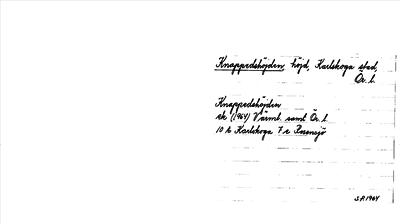 Knappedshöjden, höjd, Karlskoga stad,
Ör. l.
Knappedshöjden
ek (1964) Värml. samt Ör. l
10 h Karlskoga 7 r Rosensjö
SA 1964